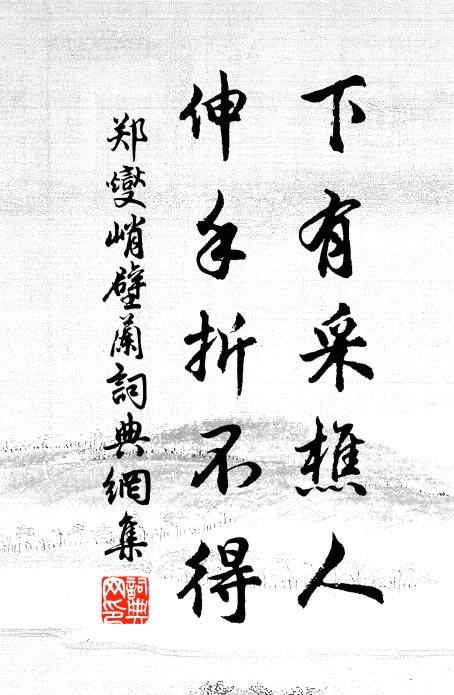 下有采樵人
伸手折不得
郑燮峭壁蘭詞典網集
詞典网印